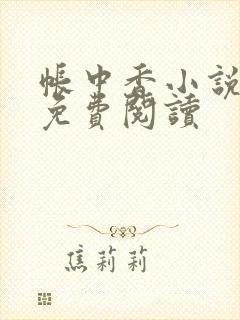 帳中香小說
免費閱讀
焦莉莉